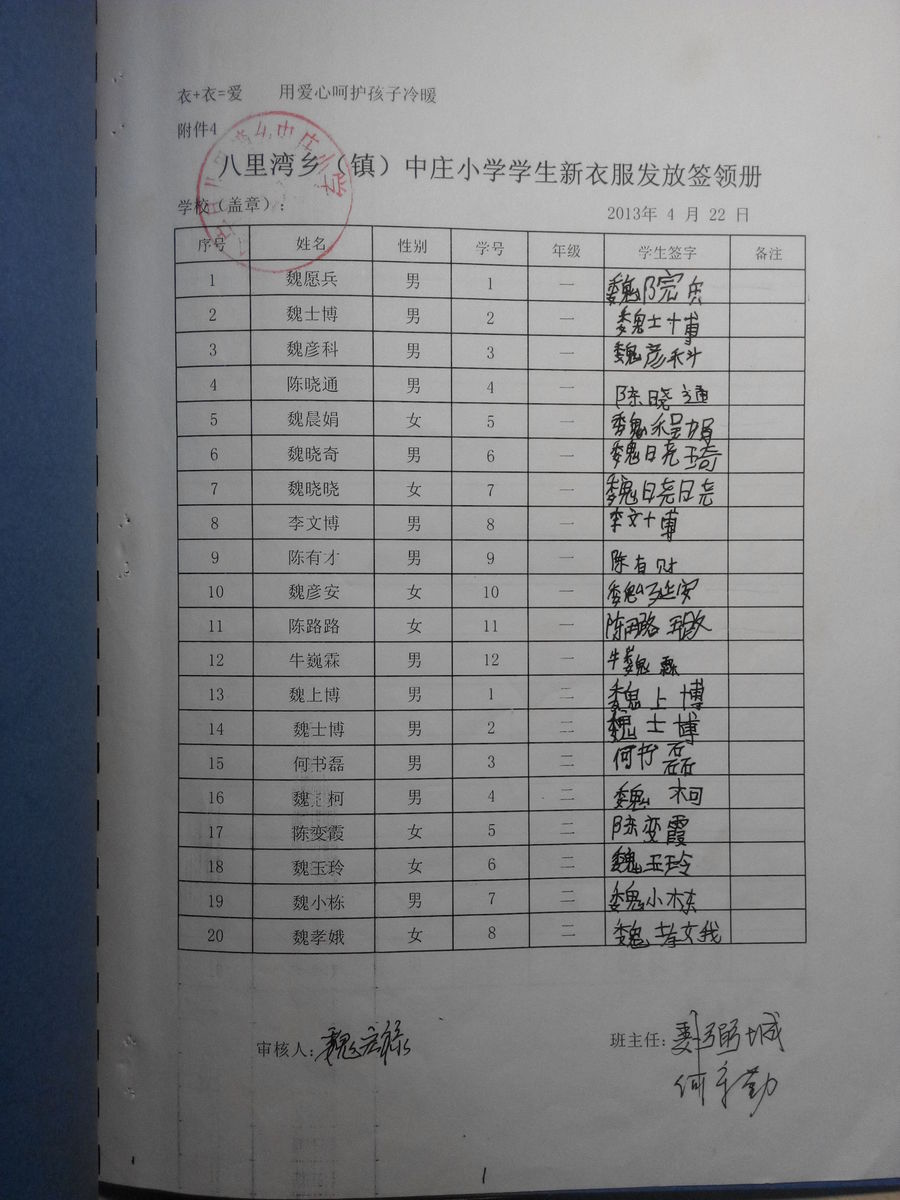 衣+衣=爱 用爱心呵护孩子冷暖
附件4
八里湾乡（镇）中庄小学学生新衣服发放签领册
学校（盖章）： 2013年 4 月 22 日
序号 姓名 性别 学号 年级 学生签字 备注
1 魏愿兵 男 1 一 魏院兵
2 魏士博 男 2 一 魏士博
3 魏彦科 男 3 一 魏彦科
4 陈晓通 男 4 一 陈晓通
5 魏晨娟 女 5 一 魏程娟
6 魏晓奇 男 6 一 魏晓琦
7 魏晓晓 女 7 一 魏晓晓
8 李文博 男 8 一 李文博
9 陈有才 男 9 一 陈有财
10 魏彦安 女 10 一 魏
11 陈路路 女 11 一 陈路路
12 牛巍霖 男 12 一 牛巍霖
13 魏上博 男 1 二 魏上博
14 魏士博 男 2 二 魏士博
15 何书磊 男 3 二 何书磊
16 魏 柯 男 4 二 魏 柯
17 陈变霞 女 5 二 陈变霞
18 魏玉玲 女 6 二 魏玉玲
19 魏小栋 男 7 二 魏小栋
20 魏孝娥 女 8 二 魏孝娥
审核人：魏宏禄 班主任：
1